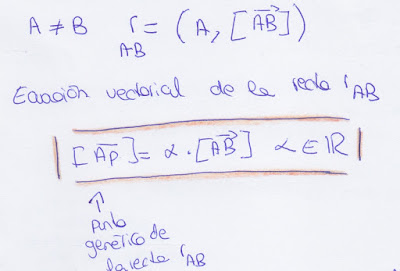 A ≠ B r_AB = (A, [AB→])
Ecuación vectorial de la recta r_AB
[AP→] = α · [AB→] α ∈ ℝ
↑
punto
genérico de
la recta r_AB